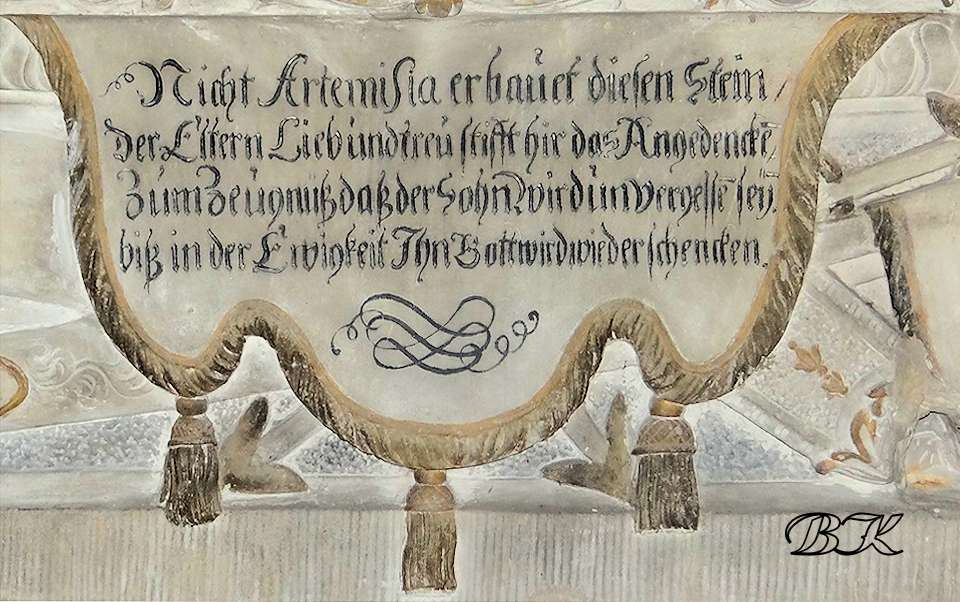 Nicht Artemisia erbauet diesen Stein,
der Eltern Lieb und treu stifft hir das Angedencke,
Zum Zeugnüß daß der Sohn wird unvergesse sey,
biß in der Ewigkeit Ihn Gott wird wieder schencken.
BK